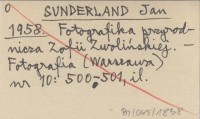 0 SUNDERLAND Jan
1958. Fotografika przyrod-
nicza Zofii Zwolińskiej. -
Fotografia (Warszawa)
nr 10: 500-501, il.